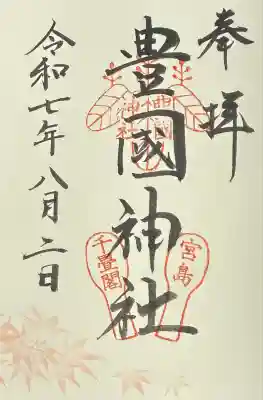 奉拝
豊國神社
宮島
千畳閣
令和七年八月二日